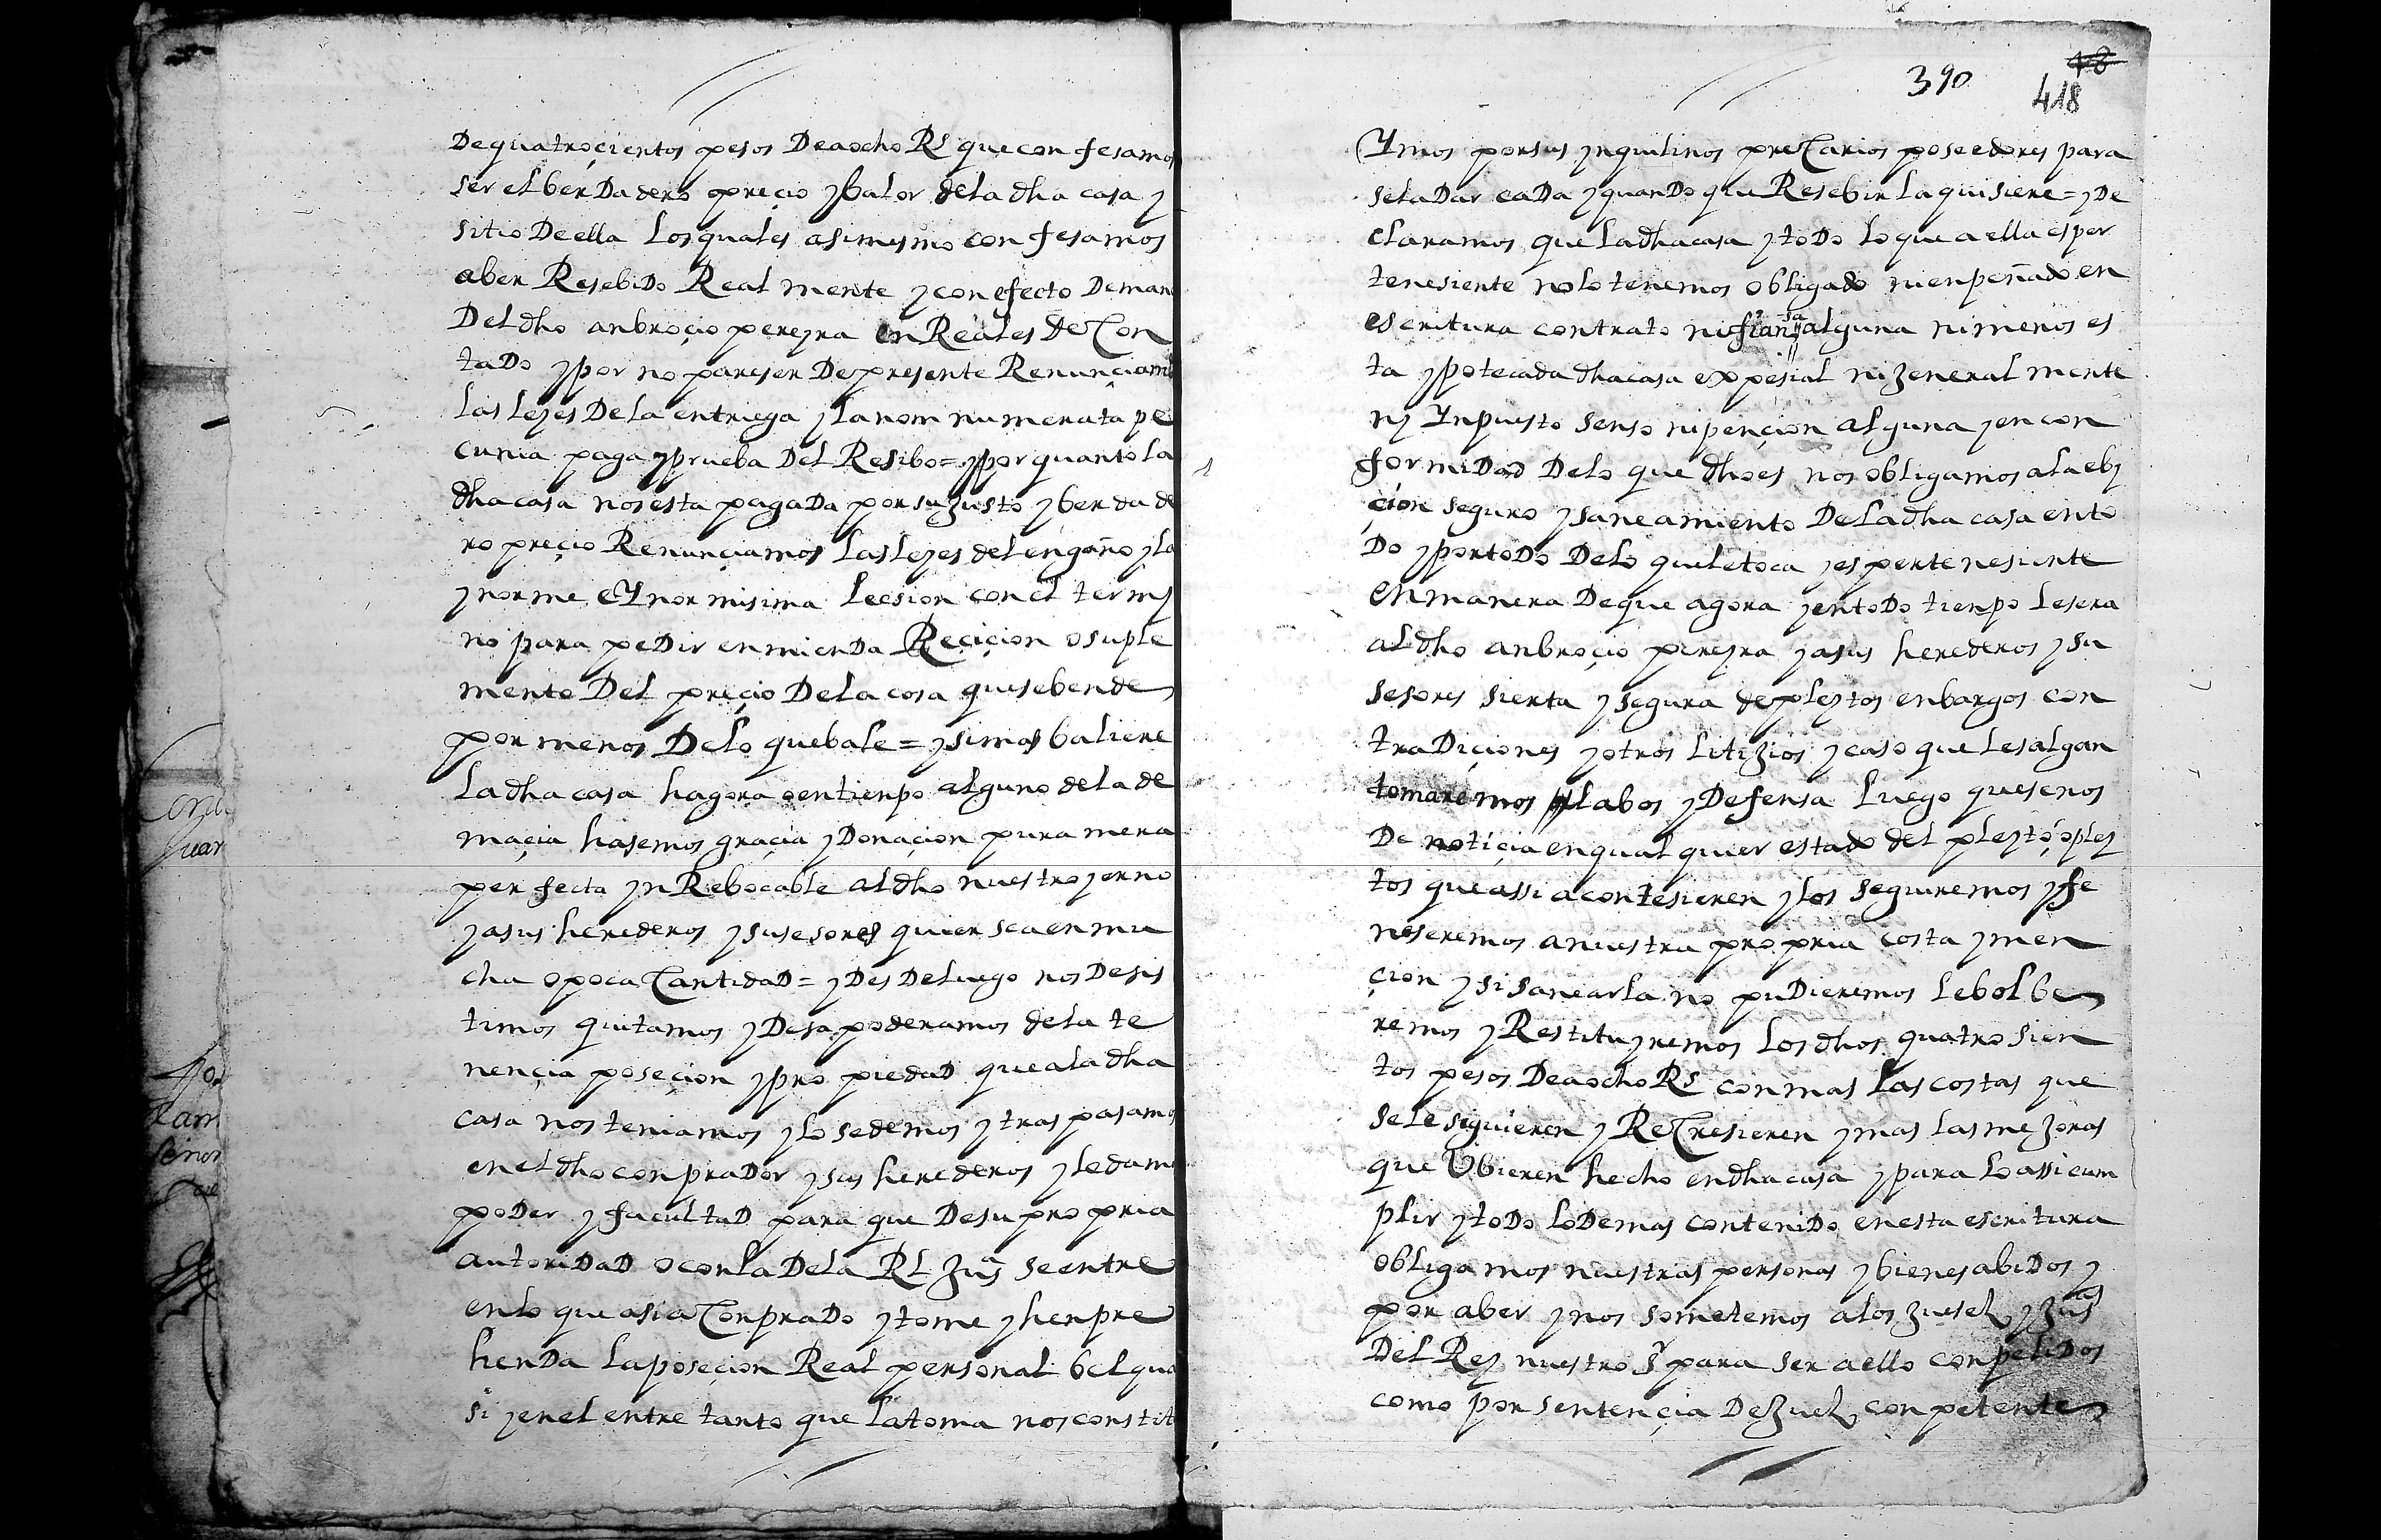 De quatroçientos pesos De a ocho Rs que confesamos
ser el berDadero preçio y balor de la dha casa y
sitio De ella Los quales asimesmo confesamos
aber ResebiDo Real mente y con efecto De mano
Del dho anbroçio pereyra en Reales de Con
taDo y por no pareser De presente Renunçiamos
las leyes De la entriega y la nom numerata pe
cunia paga y prueba Del Resibo = y por quanto la
dha casa nos esta pagaDa por su justo y berdade
ro preçio Renunçiamos Las leyes del engaño y la
ynorme e Ynormisima Leesion con el termy
no para peDir enmienDa Reçiçion o suple
mento Del preçio De la cosa que se bende
por menos De lo que bale = y si mas baliere
La dha casa hagora o en tienpo alguno de la de
maçia hasemos graçia y Donaçion pura mera
perfecta yn Rebocable al dho nuestro yerno
y a sus herederos y susesores quier sea en mu
cha o poca CantidaD = y DesDe luego nos Desis
timos quitamos y Desapoderamos de la te
nençia poseçion y propiedaD que a la dha
casa nos teniamos y lo sedemos y traspasamos
en el dho conpraDor y sus herederos y le damos
poDer y facultaD para que De su propria
autoriDaD o con la De la RL Jusa se entre
en lo que asi a ConpraDo y tome y henpre
henDa la poseçion Real personal bel qua
si y en el entre tanto que la toma nos constit
390
48
418
Ymos por sus ynquilinos preCarios poseedores para
se la Dar caDa y quanDo que Resebir La quisiere = y De
claramos que La dha casa y toDo lo que a ella es per
tenesiente no lo tenemos obligado ni enpeñado en
escritura contrato ni fiansa alguna ni menos es
ta ypotecada dha casa expesial ni jeneral mente
ny Ynpuesto senso ni pençion alguna y en con
formiDad De lo que dho es nos obligamos a la eby
çion seguro y saneamiento De La dha casa en to
Do y por toDo De lo que le toca y es pertenesiente
En manera De que agora y en toDo tienpo le sera
al dho anbroçio pereyra y a sus herederos y su
sesores sierta y segura de pleytos enbargos con
traDiçiones y otros litijios y caso que le salgan
tomaremos la bos y Defensa Luego que se nos
De notiçia en qual quier estado del pleyto o pley
tos que assi acontesieren y los seguiremos y fe
neseremos a nuestra propria costa y men
çion y si sanearla no puDieremos le bolbe
remos y Restituyremos Los dhos quatro sien
tos pesos De a ocho Rs con mas Las costas que
se le siguieren y ReCresieren y mas las mejoras
que Ubieren hecho en dha casa y para Lo assi cum
plir y toDo lo Demas conteniDo en esta escritura
obligamos nuestras personas y bienes abiDos y
por aber y nos sometemos a los juesez y jusas
Del Rey nuestro Sr para ser a ello conpeliDos
como por sentençia De juez conpetente